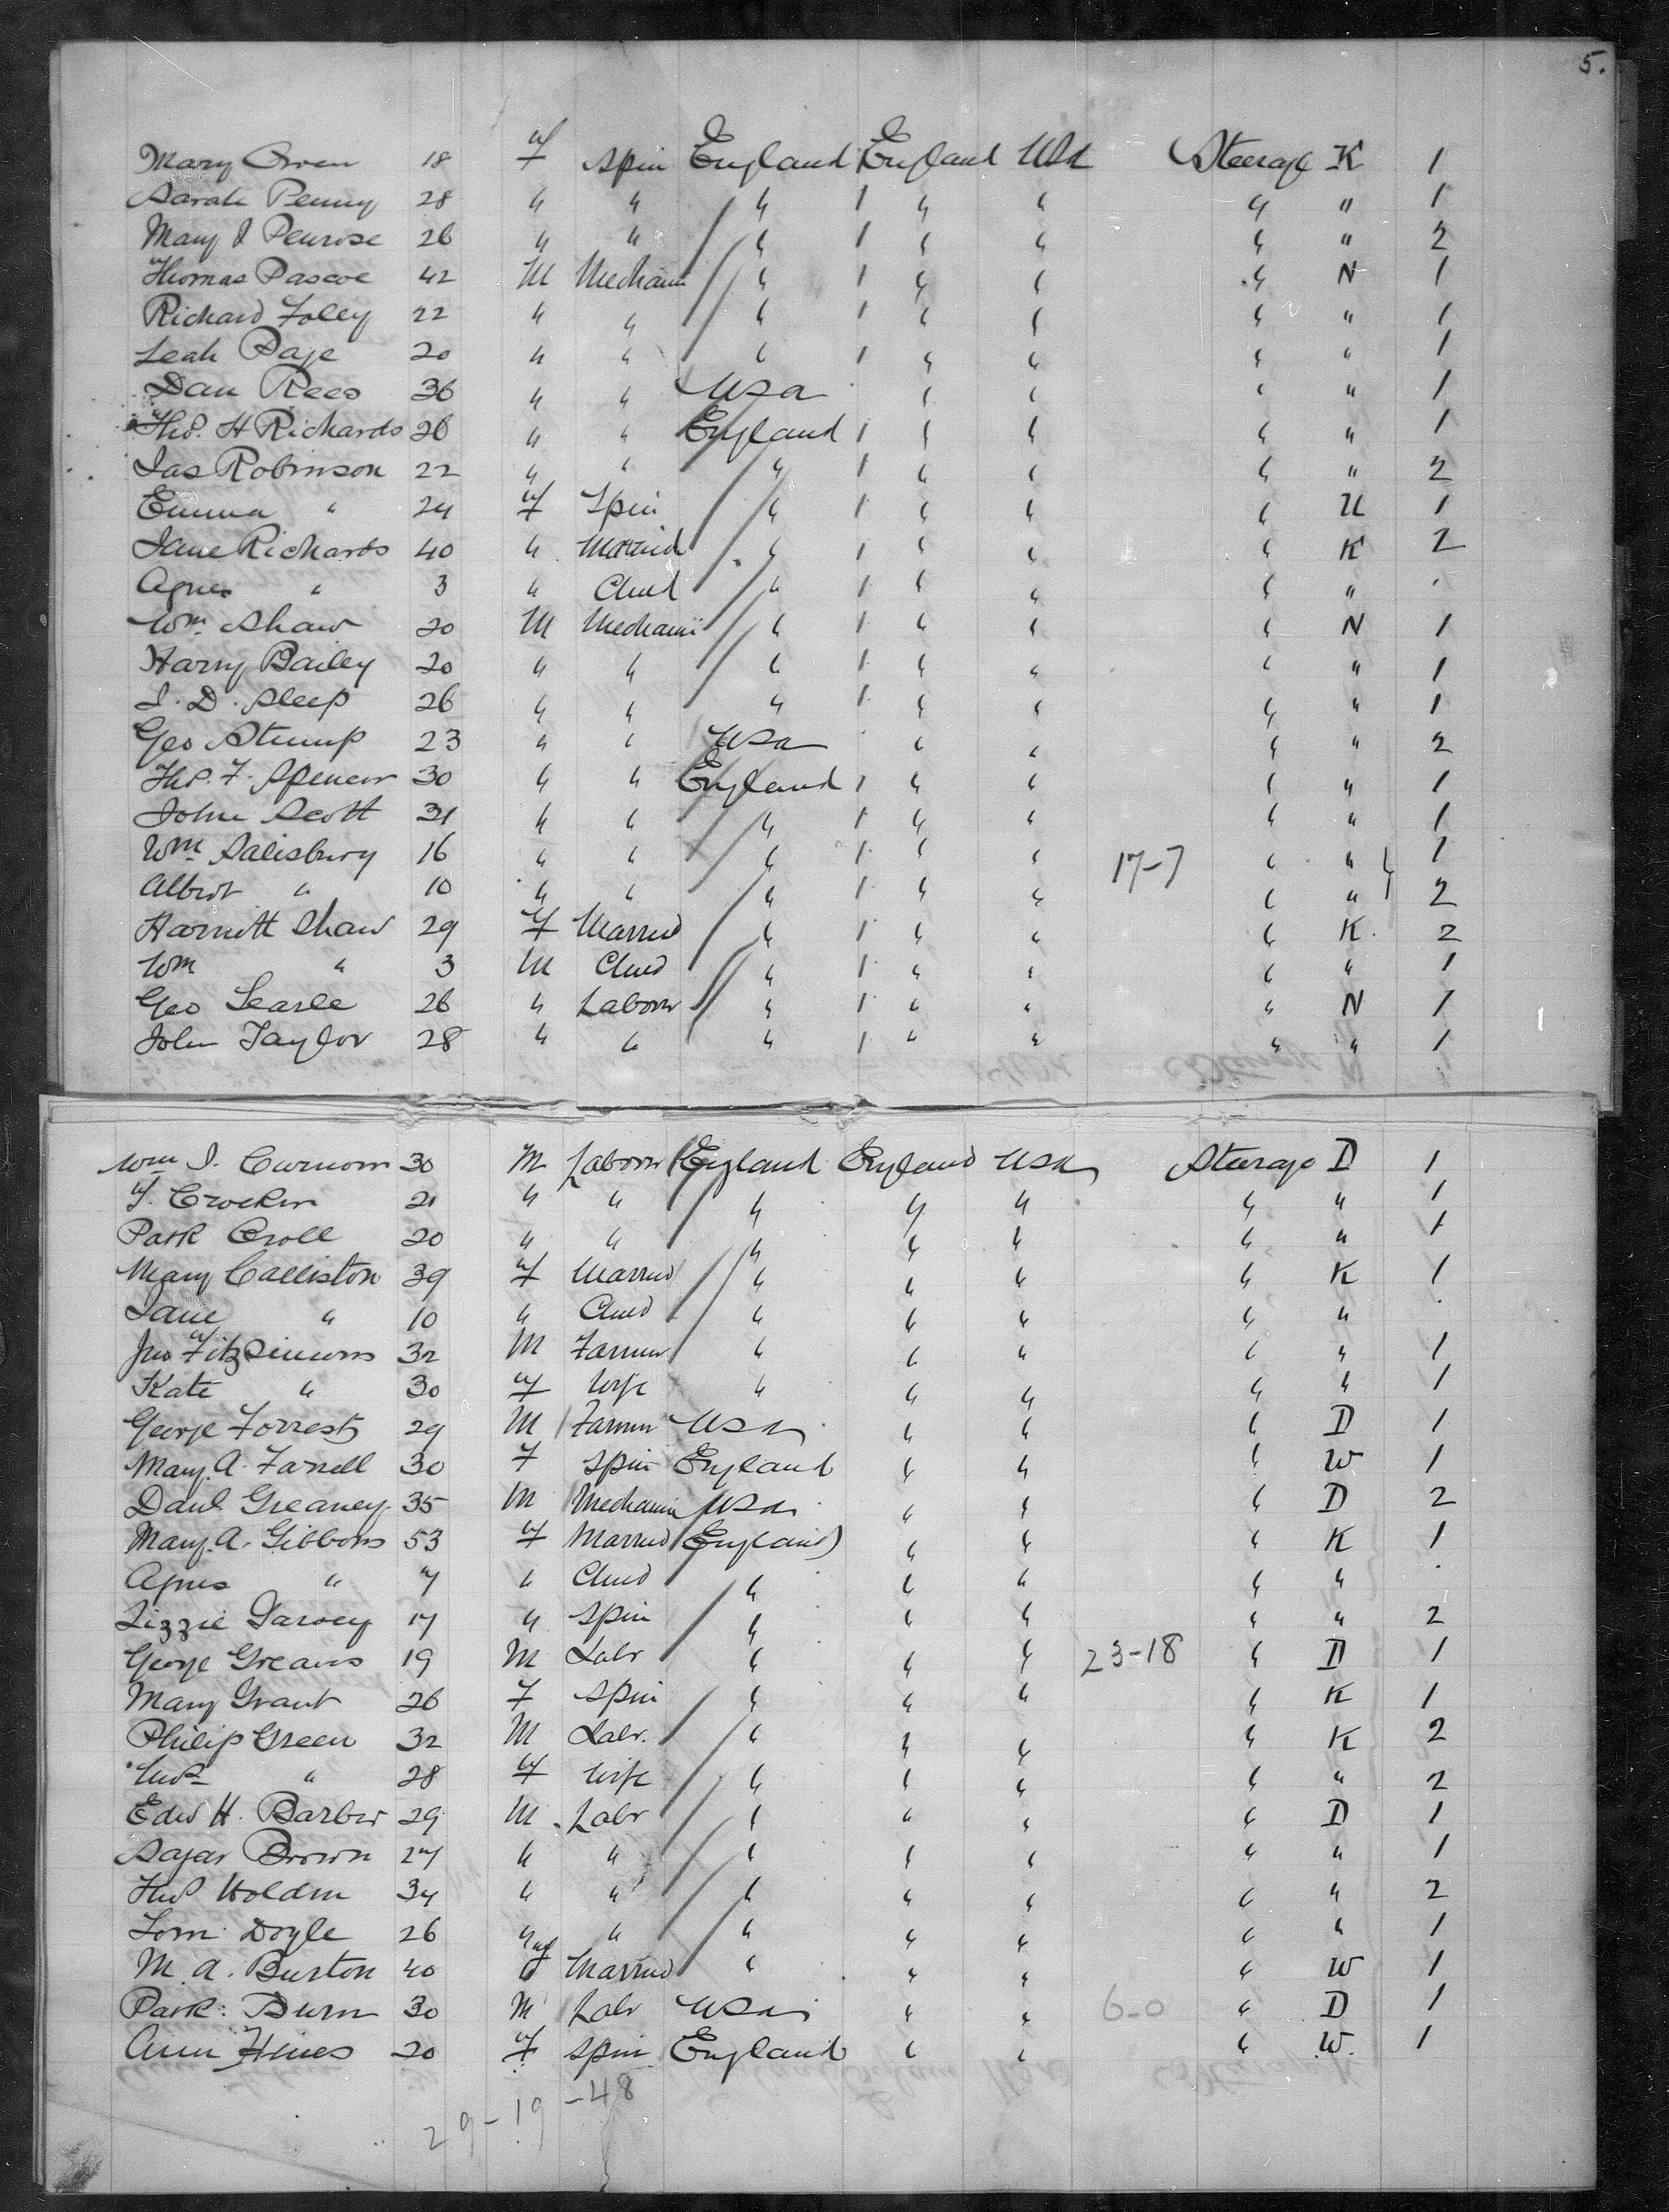 5.
Mary Owen 18 F Spin England 1 England USA Steerage K 1
Sarah Penny 28 " " " 1 " " " " 1
Mary J Penrose 26 " " " 1 " " " " 2
Thomas Pascoe 42 M Mechanic " 1 " " " N 1
Richard Foley 22 " " " 1 " " " " 1
Leah Page 20 " " " 1 " " " " 1
Dan Rees 36 " " USA " " " " 1
Thos. H Richards 26 " " England 1 " " " " 1
Jas Robinson 22 " " " 1 " " " " 2
Emma " 24 F Spin " 1 " " " U 1
Jane Richards 40 " Married " 1 " " " K 2
Agnes " 3 " Child " 1 " " " " .
Wm Shaw 20 M Mechanic " 1 " " " N 1
Harry Bailey 20 " " " 1 " " " " 1
J. D. Sleep 26 " " " 1 " " " " 1
Geo Stump 23 " " USA " " " " 2
Thos. F. Spencer 30 " " England 1 " " " " 1
John Scott 31 " " " 1 " " " " 1
Wm Salisbury 16 " " " 1 " " 17-7 " " 1
Albert " 10 " " " 1 " " " " 2
Harriett Shaw 29 F Married " 1 " " " K. 2
Wm " 3 M Child " 1 " " " " 1
Geo Searle 26 " Laborer " 1 " " " N 1
John Taylor 28 " " " 1 " " " " 1
Wm J. Curnow 30 M Laborer England England USA Steerage D 1
F. Crocker 21 " " " " " " " 1
Patk Croll 20 " " " " " " " 1
Mary Calliston 39 F Married " " " " K 1
Jane " 10 " Child " " " " " .
Jno Fitzsimons 32 M Farmer " " " " " 1
Kate " 30 F Wife " " " " " 1
George Forrest 29 M Farmer USA " " " D 1
Mary A. Farrell 30 F Spin England " " " W 1
Danl. Greaney 35 M Mechanic USA " " " D 2
Mary A. Gibbons 53 F Married England " " " K 1
Agnes " 7 " Child " " " " " .
Lizzie Garvey 17 " Spin " " " " " 2
George Greaves 19 M Labr " " " 23-18 " D 1
Mary Grant 26 F Spin " " " " K 1
Philip Green 32 M Labr. " " " " K 2
Mrs " 28 F Wife " " " " " 2
Edw H. Barber 29 M Labr " " " " D 1
Sagar Brown 27 " " " " " " " 1
Thos Holden 34 " " " " " " " 2
Tom Doyle 26 " " " " " " " 1
M. A. Burton 40 F Married " " " " W 1
Patk: Burn 30 M Labr USA " " 6-0 " D 1
Ann Hines 20 F Spin England " " " W. 1
29-19-48